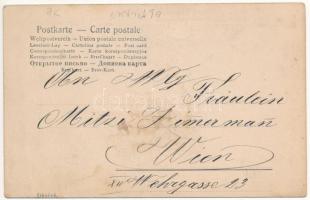 Postkarte — Carte postale
Weltpostverein – Union postale universelle
Levelező-Lap – Cartolina postale – Post card
Correspondenzkarte – Karta korespondencyjna
Korespondenční lístek – Brefkaart – Dopisnica
Открытое письмо – Дописна карта
An Wg
Fräulein
Milzi Zimerman
Wien
XII Wehrgasse 23